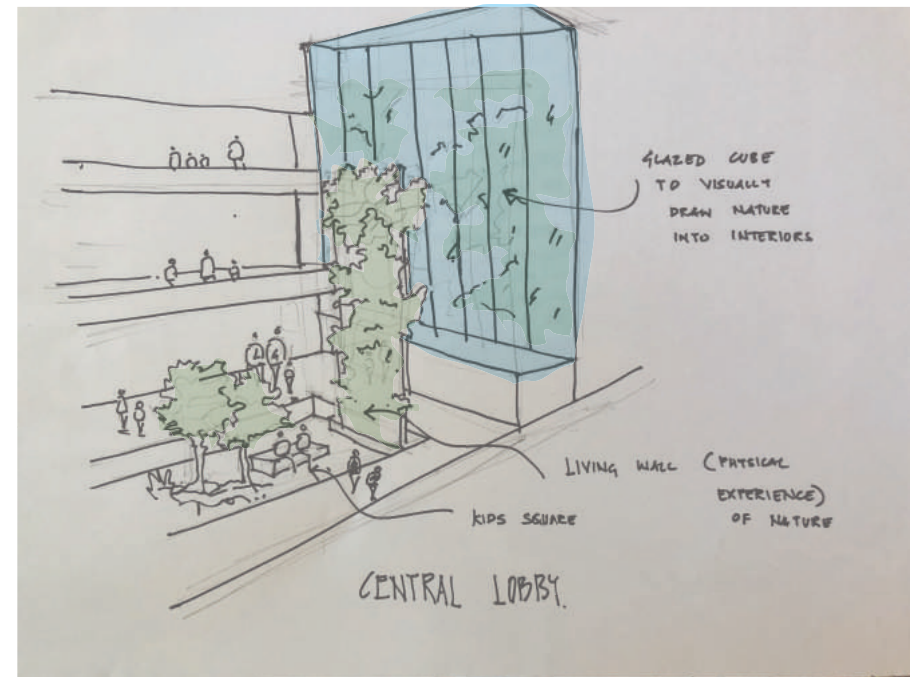 GLAZED CUBE
TO VISUALLY
DRAW NATURE
INTO INTERIORS
LIVING WALL (PHYSICAL
EXPERIENCE)
OF NATURE
KIDS SQUARE
CENTRAL LOBBY.